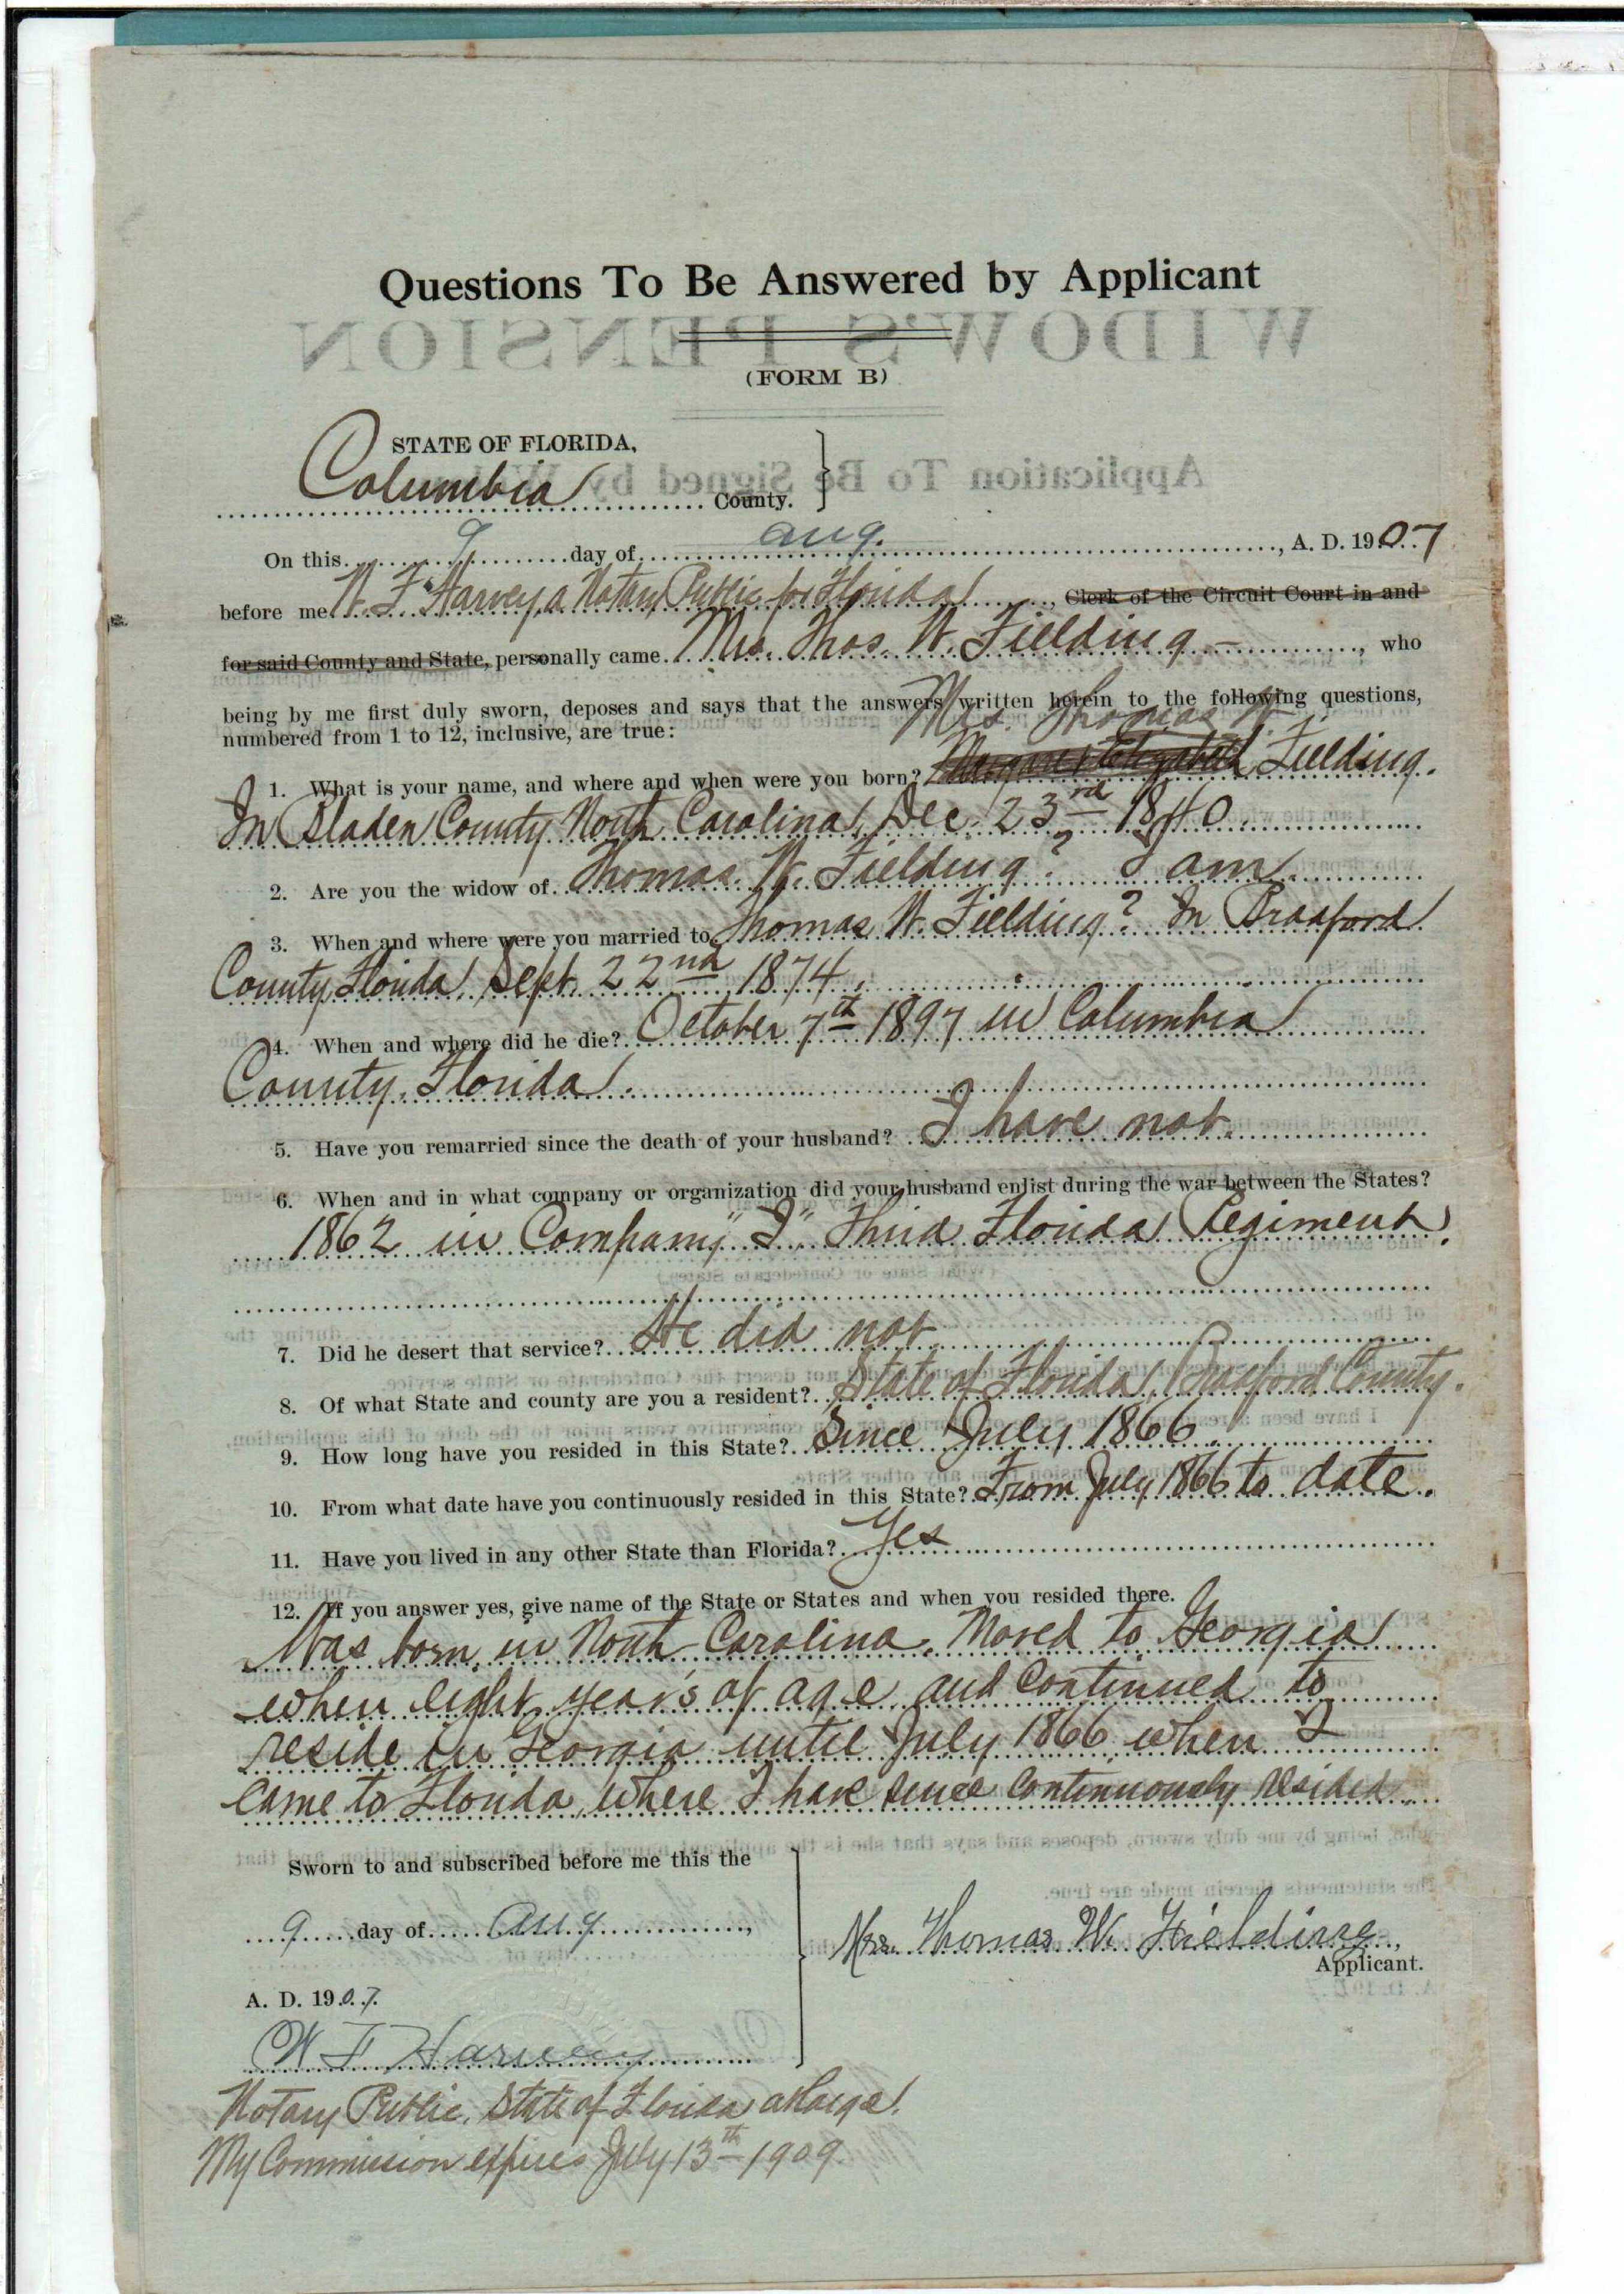 Questions To Be Answered by Applicant
WIDOW'S PENSION
(FORM B)
STATE OF FLORIDA,
Columbia County.
Application To Be Signed by
On this 9 day of Aug. , A. D. 1907
before me W. F. Harvey, a Notary Public for Florida , Clerk of the Circuit Court in and
for said County and State, personally came Mrs. Thos. W. Fielding - , who
being by me first duly sworn, deposes and says that the answers written herein to the following questions,
numbered from 1 to 12, inclusive, are true:
Mrs. Thomas W.
1. What is your name, and where and when were you born? Margaret Elizabeth Fielding.
In Bladen County North Carolina, Dec. 23rd 1840.
2. Are you the widow of Thomas W. Fielding? I am.
3. When and where were you married to Thomas W. Fielding? In Bradford
County, Florida, Sept. 22nd 1874.
4. When and where did he die? October 7th 1897 in Columbia
County, Florida.
5. Have you remarried since the death of your husband? I have not.
6. When and in what company or organization did your husband enlist during the war between the States?
1862 in Company "I" Third Florida Regiment.
7. Did he desert that service? He did not
8. Of what State and county are you a resident? State of Florida, Bradford County.
9. How long have you resided in this State? Since July 1866.
10. From what date have you continuously resided in this State? From July 1866 to date.
11. Have you lived in any other State than Florida? Yes
12. If you answer yes, give name of the State or States and when you resided there.
Was born in North Carolina. Moved to Georgia
when eight years of age and continued to
reside in Georgia until July 1866 when I
came to Florida, where I have since continuously resided.
Sworn to and subscribed before me this the
9 day of Aug ,
A. D. 1907.
Mrs. Thomas W. Fielding,
Applicant.
W F Harvey
Notary Public, State of Florida at large.
My Commission expires July 13th - 1909